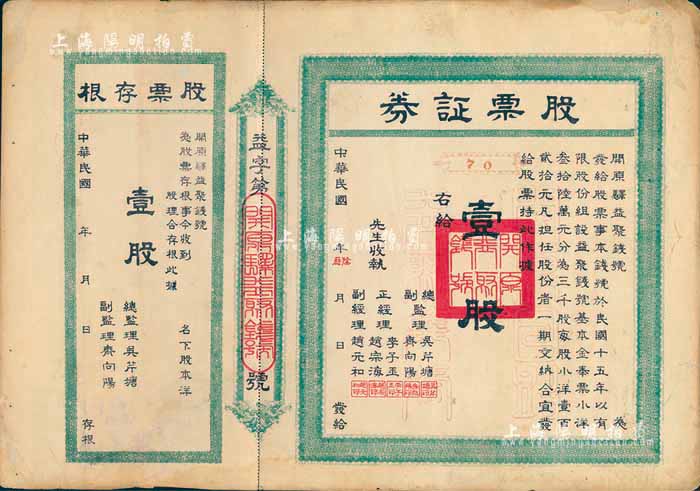 上海陽明拍賣
上海陽明拍賣
股票証劵
70
開原驛益聚錢號 為
發給股票事本錢號於民國十五年以有
限股份組設益聚錢號基本金奉票小洋
叁拾陸萬元分為三千股每股小洋壹百
貳拾元凡担任股份者一期交納合宜發
給股票持此作據
壹股
右給
先生收執
總監理 吳芹塘
副監理 齊向陽
正經理 李子玉
趙宗海
副經理 趙元和
中華民國 年 月 日 發給
益字第 號
股票存根
開原驛益聚錢號
為股票存根事今收到
名下股本洋
股理合存根此據
壹股
總監理 吳芹塘
副監理 齊向陽
中華民國 年 月 日 存根
上海陽明拍賣
上海陽明拍賣